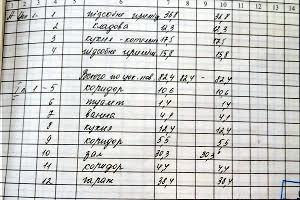 1 2 3 4 5 6 7 8 9 10 11
1 підсобне приміщ 36,8 36,8
2 кладова 12,3 12,3
3 кухня-котельня 17,5 17,5
4 підсобне приміщ 15,8 15,8
Всього по цок. пов 82,4 82,4 - 82,4
1 - 5 коридор 10,6 10,6
6 туалет 1,4 1,4
7 ванна 4,1 4,1
8 кухня 12,4 12,4
9 коридор 5,5 5,5
10 зал 30,3 30,3
11 коридор 4,4 4,4
12 гараж 38,4 38,4